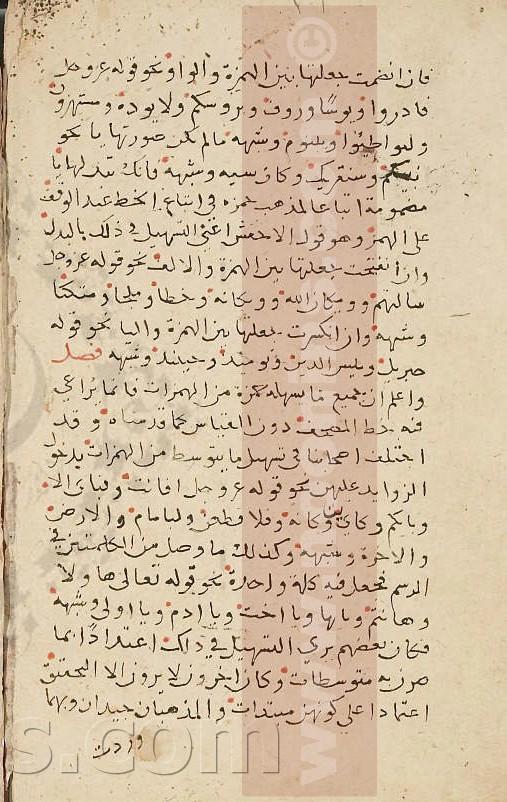 فان انضمت جعلتها بين الهمزة والواو نحو قوله عز وجل
فادروا ويوسا وروف وبروسكم ولا يوده ومستهزون
وليواطئوا ويبنوم وشبهه مالم تكن صورتها يا نحو
وسنقريك وكان سيه وشبهه فانك تبدلها يا
مضمومة اتباعا لمذهب حمزه في اتباع الخط عند الوقف
على الهمز وهو قول الاخفش اعني التسهيل في ذلك بالبدل
وان انفتحت جعلتها بين الهمزة والالف نحو قوله عز وجل
سالتهم وويكان الله وويكانه وخطا وملجا ومتكئا
وشبهه وان انكسرت جعلتها بين الهمزة واليا نحو قوله
جبريل ويئس الذين ويومئذ وحينئذ وشبهه فصل
واعلم ان جميع ما يسهله حمزة من الهمزات فانما يراعي
فيه خط المصحف دون القياس كما قدمناه وقد
اختلف اصحابنا في تسهيل ما يتوسط من الهمزات بدخول
الزوايد عليهن نحو قوله عز وجل افانت وفباي الا
وبايكم وكاين وكانه وفلاقطعن ولبامام والارض
والاخرة وشبهه وكذلك ما وصل من الكلمتين في
الرسم فجعل فيه كلمة واحدة نحو قوله تعالى هاولا
وهانتم ويايها وياخت ويادم وياولي وشبهه
فكان بعضهم يرى التسهيل في ذلك اعتدادا بما
صرن به متوسطات وكان اخرون لا يرون الا التحقيق
اعتمادا على كونهن مبتدات والمذهبان جيدان وبهما
وردت
s.com